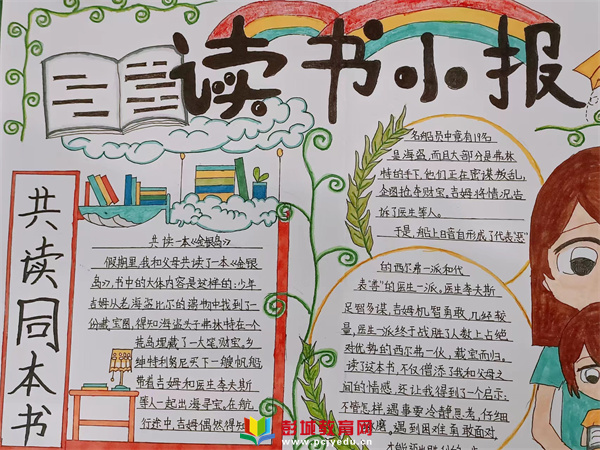 读书小报
共读同本书
共读一本《金银岛》
假期里,我和父母共读了一本《金银
岛》,书中的大体内容是这样的:少年
吉姆从老海盗比尔的遗物中找到了一
份藏宝图,得知海盗头子弗林特在一个
荒岛埋藏了一大笔财宝。乡
绅特利劳尼买下一艘帆船,
带着吉姆和医生李夫斯
等人一起出海寻宝。在航
行途中,吉姆偶然得知
名船员中竟有19名
是海盗,而且大部分是弗林
特的手下,他们正在密谋叛乱,
企图抢夺财宝。吉姆将情况告
诉了医生等人。
于是,船上日音自形成了代表"恶"
的西尔弗一派和代
表"善"的医生一派。医生李夫斯
足智多谋,吉姆机智勇敢,几经较
量,医生一派终于战胜了人数上占绝
对优势的西尔弗一伙,载宝而归。
读了这本书,不仅增添了我和父母之
间的情感,还让我得到了一个启示:
不管怎样,遇事要冷静思考,仔细
琢磨。遇到困难勇敢面对,
彭城教育网
www.pcjyedu.cn